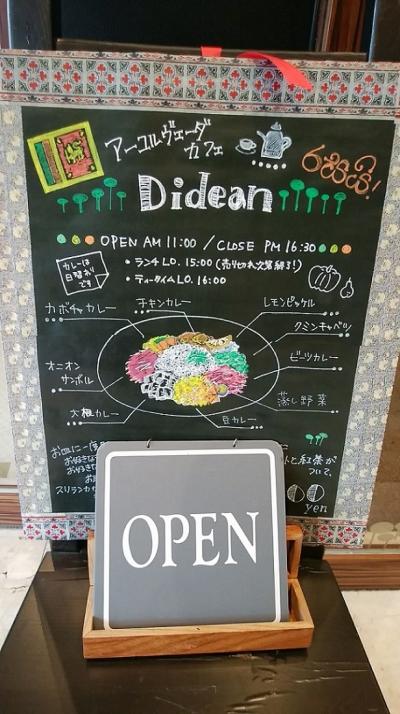 アーユルヴェーダ
カフェ
රසයි!
Didean
OPEN AM 11:00 / CLOSE PM 16:30
・ランチ LO. 15:00 (売り切れ次第終了!)
・ティータイム LO. 16:00
カレーは
日替わり
です
カボチャカレー
チキンカレー
レモンピックル
クミンキャベツ
オニオン
サンボル
ビーツカレー
大根カレー
豆カレー
蒸し野菜
お皿に一度
お好きな
お好きな
スリランカ
トと紅茶が
ついて、
yen
OPEN